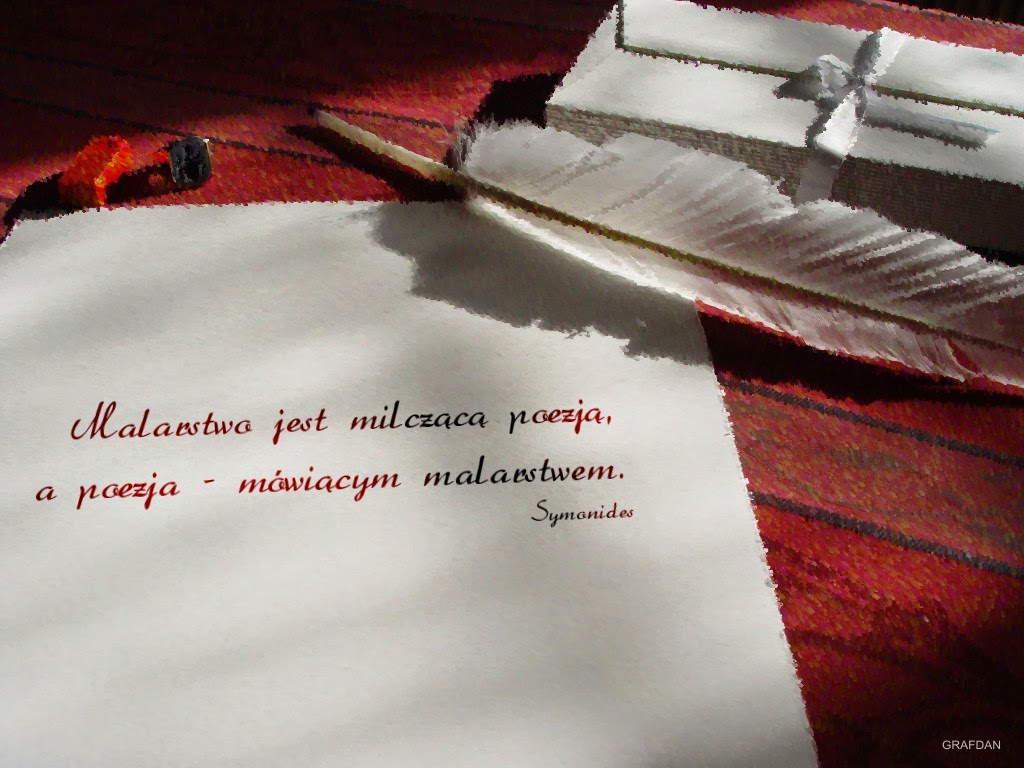 Malarstwo jest milczącą poezją,
a poezja - mówiącym malarstwem.
Symonides
GRAFDAN